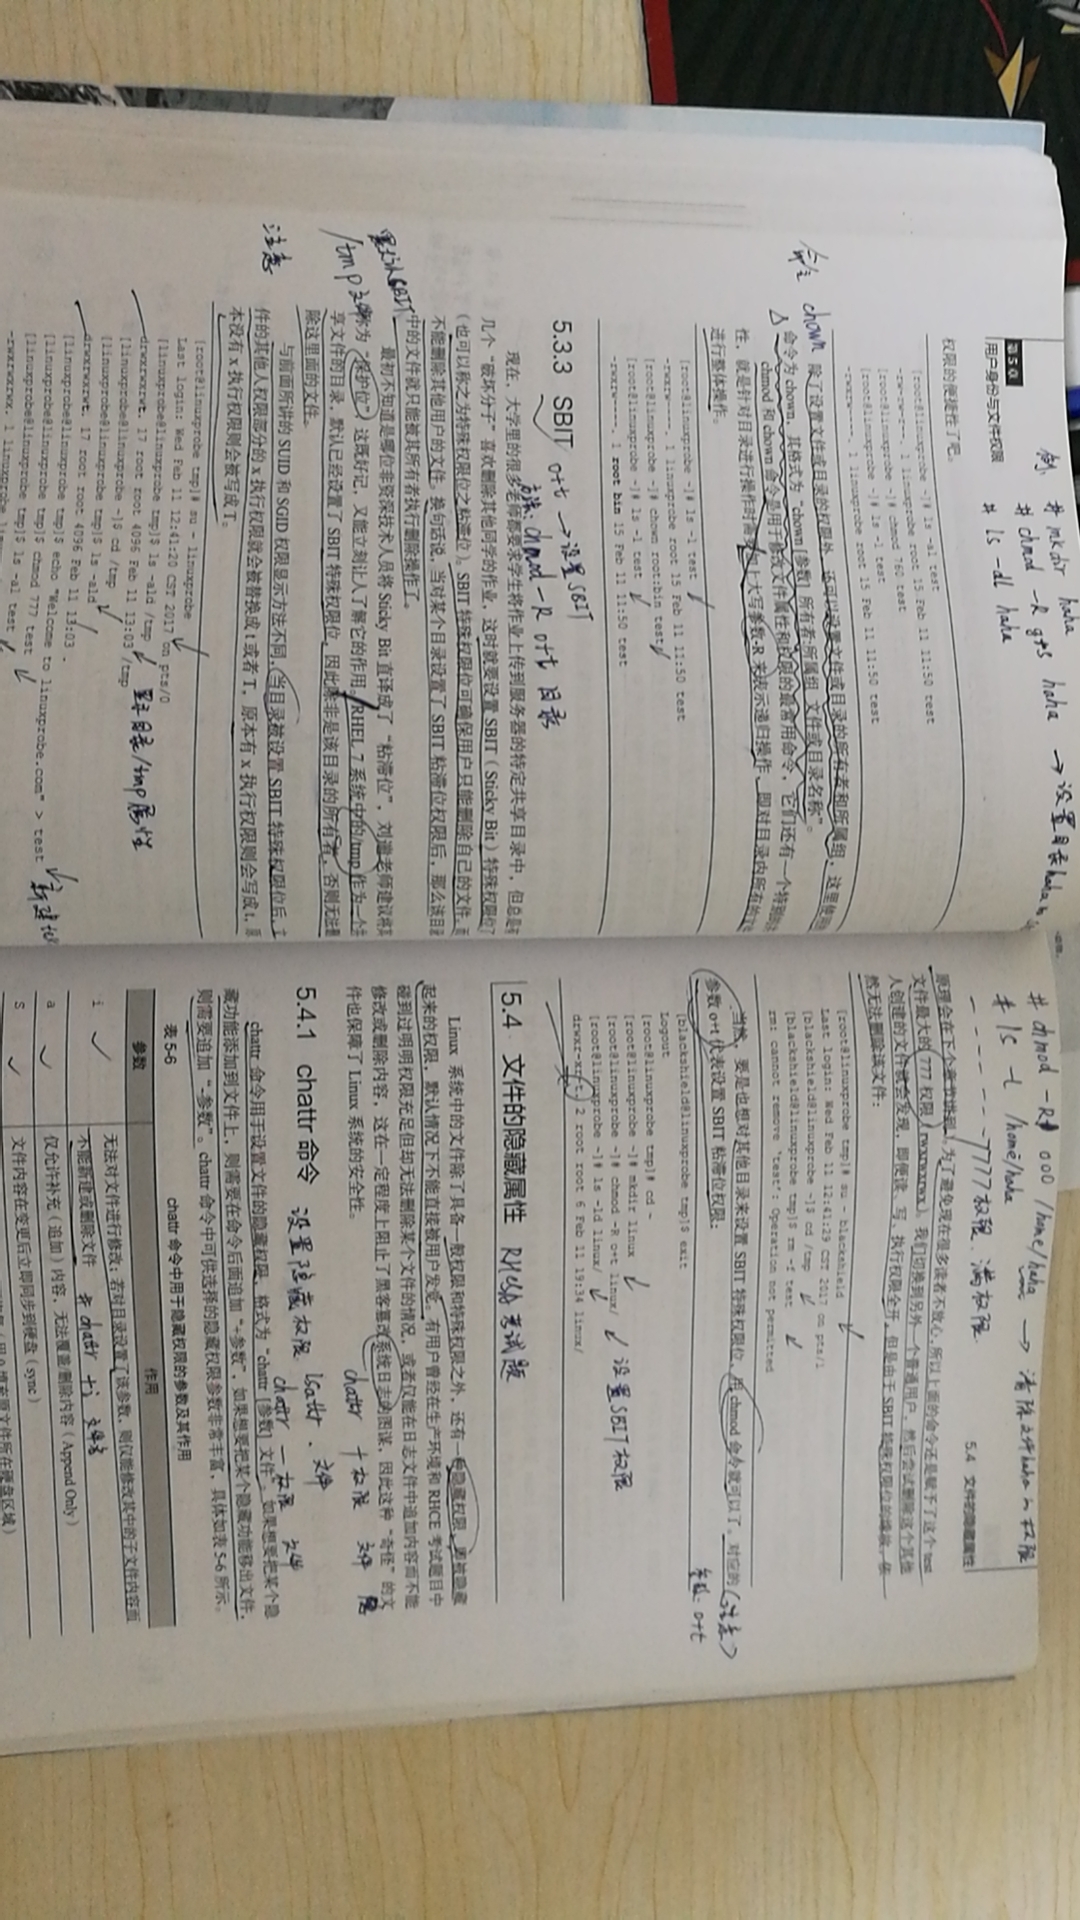 例. # mkdir haha
# chmod -R g+s haha → 设置目录haha
# ls -dl haha
第5章
用户身份与文件权限
权限的便捷性了吧。
[root@linuxprobe ~]# ls -al test
-rw-rw-r--. 1 linuxprobe root 15 Feb 11 11:50 test
[root@linuxprobe ~]# chmod 760 test
[root@linuxprobe ~]# ls -l test
-rwxrw----. 1 linuxprobe root 15 Feb 11 11:50 test
命令 chown
除了设置文件或目录的权限外，还可以设置文件或目录的所有者和所属组，这里使用
命令为 chown，其格式为“chown [参数] 所有者:所属组 文件或目录名称”。
chmod 和 chown 命令是用于修改文件属性和权限的最常用命令，它们还有一个特别的
性，就是针对目录进行操作时需要加上大写参数-R 来表示递归操作，即对目录内所有的
进行整体操作。
[root@linuxprobe ~]# ls -l test
-rwxrw----. 1 linuxprobe root 15 Feb 11 11:50 test
[root@linuxprobe ~]# chown root:bin test
[root@linuxprobe ~]# ls -l test
-rwxrw----. 1 root bin 15 Feb 11 11:50 test
5.3.3 SBIT o+t → 设置SBIT
方法: chmod -R o+t 目录
现在，大学里的很多老师都要求学生将作业上传到服务器的特定共享目录中，但总是有
几个“破坏分子”喜欢删除其他同学的作业，这时就要设置 SBIT（Sticky Bit）特殊权限位了
（也可以称之为特殊权限位之粘滞位）。SBIT 特殊权限位可确保用户只能删除自己的文件，而
不能删除其他用户的文件。换句话说，当对某个目录设置了 SBIT 粘滞位权限后，那么该目录
中的文件就只能被其所有者执行删除操作了。
最初不知道是哪位非资深技术人员将 Sticky Bit 直译成了“粘滞位”，刘遄老师建议将其
称为“保护位”，这既好记，又能立刻让人了解它的作用。RHEL 7 系统中的/tmp 作为一个共
享文件的目录，默认已经设置了 SBIT 特殊权限位，因此除非是该目录的所有者，否则无法删
除这里面的文件。
/tmp
注意
与前面所讲的 SUID 和 SGID 权限显示方法不同，当目录被设置 SBIT 特殊权限位后，文
件的其他人权限部分的 x 执行权限就会被替换成 t 或者 T，原本有 x 执行权限则会写成 t，原
本没有 x 执行权限则会被写成 T。
[root@linuxprobe tmp]# su - linuxprobe
Last login: Wed Feb 11 12:41:20 CST 2017 on pts/0
[linuxprobe@linuxprobe tmp]$ ls -ald /tmp
drwxrwxrwt. 17 root root 4096 Feb 11 13:03 /tmp
[linuxprobe@linuxprobe ~]$ cd /tmp
[linuxprobe@linuxprobe tmp]$ ls -ald
drwxrwxrwt. 17 root root 4096 Feb 11 13:03 .
[linuxprobe@linuxprobe tmp]$ echo "Welcome to linuxprobe.com" > test
[linuxprobe@linuxprobe tmp]$ chmod 777 test
[linuxprobe@linuxprobe tmp]$ ls -al test
-rwxrwxrwx. 1 linuxprobe
目录/tmp属性
# chmod -R 000 /home/haha → 清除文件haha的权限
# ls -l /home/haha
7777权限. 满权限
5.4 文件的隐藏属性
原理会在下个章节讲到）。为了避免现在很多读者不放心，所以上面的命令还是赋予了这个 test
文件最大的 777 权限（rwxrwxrwx）。我们切换到另外一个普通用户，然后尝试删除这个其他
人创建的文件就会发现，即便读、写、执行权限全开，但是由于 SBIT 特殊权限位的缘故，依
然无法删除该文件：
[root@linuxprobe tmp]# su - blackshield
Last login: Wed Feb 11 12:41:29 CST 2017 on pts/1
[blackshield@linuxprobe ~]$ cd /tmp
[blackshield@linuxprobe tmp]$ rm -f test
rm: cannot remove 'test': Operation not permitted
当然，要是也想对其他目录来设置 SBIT 特殊权限位，用 chmod 命令就可以了。对应的
参数 o+t 代表设置 SBIT 粘滞位权限：
（注意）
参数: o+t
[blackshield@linuxprobe tmp]$ exit
Logout
[root@linuxprobe tmp]# cd ~
[root@linuxprobe ~]# mkdir linux
[root@linuxprobe ~]# chmod -R o+t linux/
[root@linuxprobe ~]# ls -ld linux/
drwxr-xr-t. 2 root root 6 Feb 11 19:34 linux/
设置SBIT权限
5.4 文件的隐藏属性 考试题
Linux 系统中的文件除了具备一般权限和特殊权限之外，还有一种隐藏权限，即被隐藏
起来的权限，默认情况下不能直接被用户发觉。有用户曾经在生产环境和 RHCE 考试题目中
碰到过明明权限充足但却无法删除某个文件的情况，或者仅能在日志文件中追加内容而不能
修改或删除内容，这在一定程度上阻止了黑客篡改系统日志的图谋，因此这种“奇怪”的文
件也保障了 Linux 系统的安全性。
chattr + 权限 文件
5.4.1 chattr 命令 设置隐藏权限 lsattr . 文件
chattr - 权限 文件
chattr 命令用于设置文件的隐藏权限，格式为“chattr [参数] 文件”。如果想要把某个隐
藏功能添加到文件上，则需要在命令后面追加“+参数”，如果想要把某个隐藏功能移出文件，
则需要追加“-参数”。chattr 命令中可供选择的隐藏权限参数非常丰富，具体如表 5-6 所示。
表 5-6 chattr 命令中用于隐藏权限的参数及其作用
参数 作用
i 无法对文件进行修改；若对目录设置了该参数，则仅能修改其中的子文件内容而
不能新建或删除文件 # chattr +i 文件名
a 仅允许补充（追加）内容，无法覆盖/删除内容（Append Only）
S 文件内容在变更后立即同步到硬盘（sync）